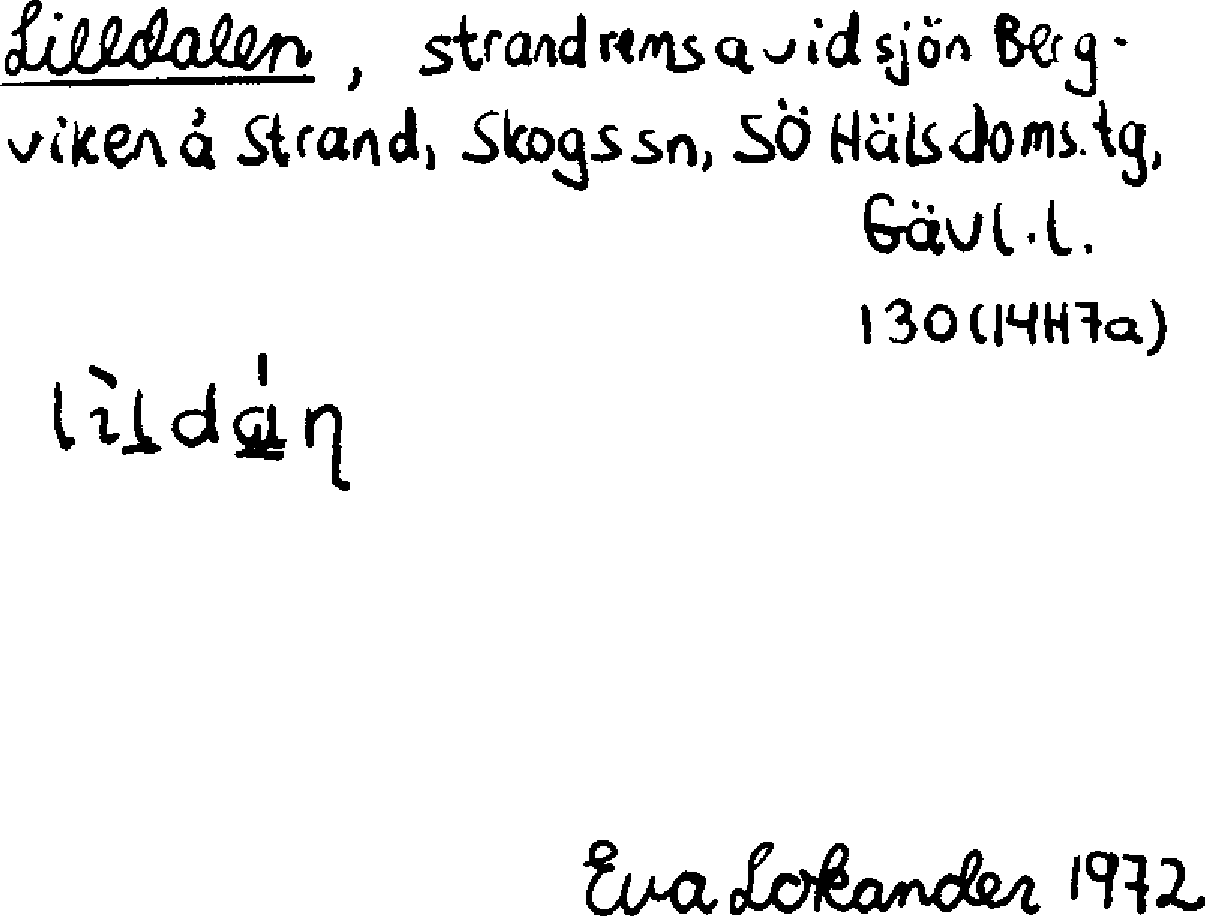 Lilldalen, strandremsa vid sjön Berg-
viken å Strand, Skogs sn, SÖ Hälsdoms.tg,
Gävl.l.
130 (14H7a)
Eva Lokander 1972